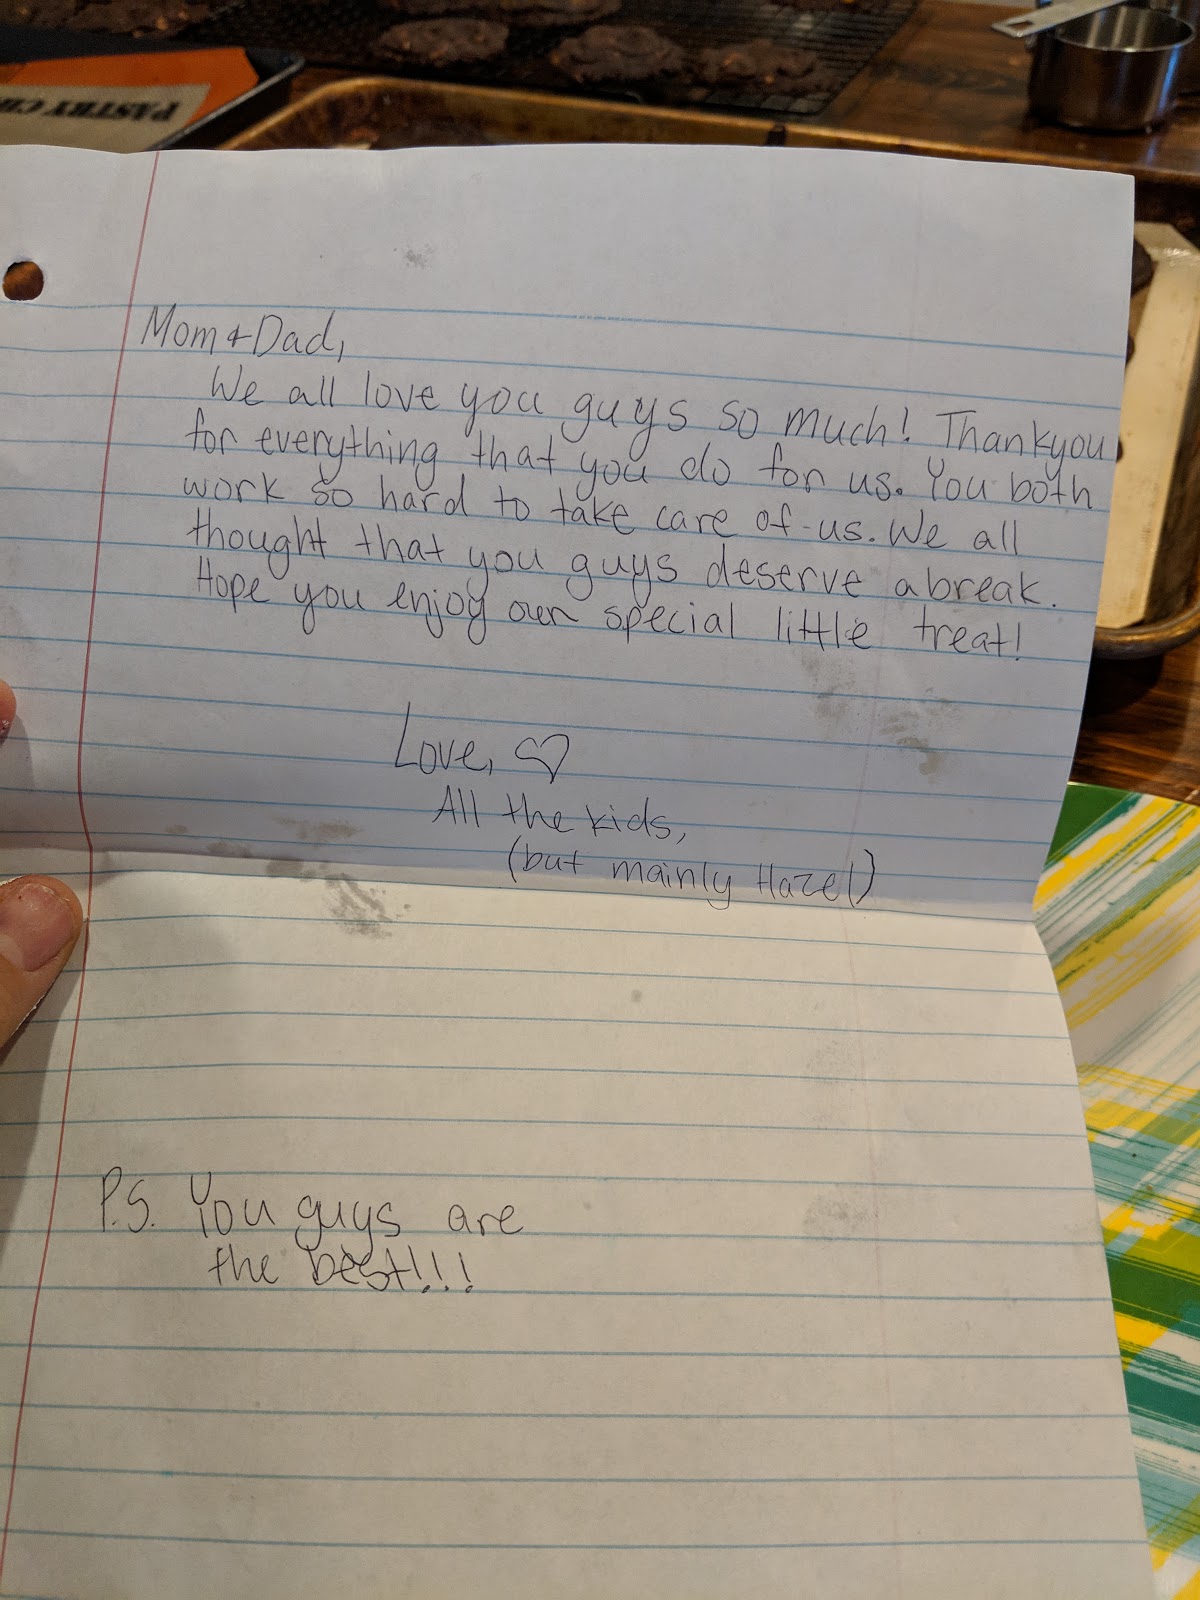 PASTRY
Mom + Dad,
We all love you guys so much! Thankyou
for everything that you do for us. You both
work so hard to take care of us. We all
thought that you guys deserve a break.
Hope you enjoy our special little treat!
Love, ♡
All the kids,
(but mainly Hazel)
P.S. You guys are
the best!!!